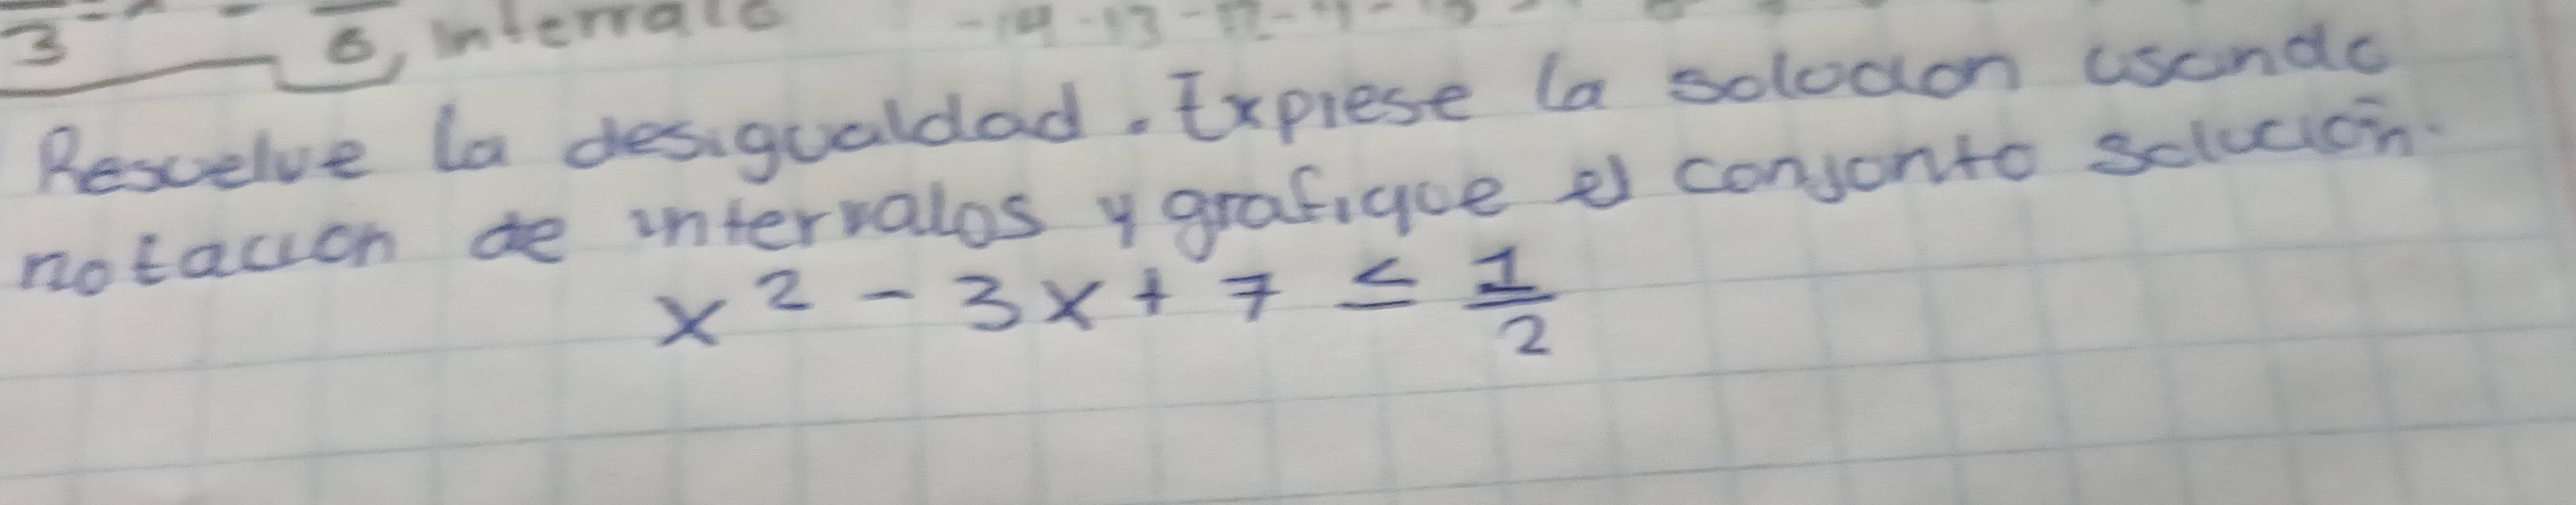 3 6, intervalo -14 -13 -12 -11 -10
Resuelve la desigualdad. Exprese la solocion usando
notacion de intervalos y grafique el conjonto solución.
x² - 3x + 7 ≤ 1/2